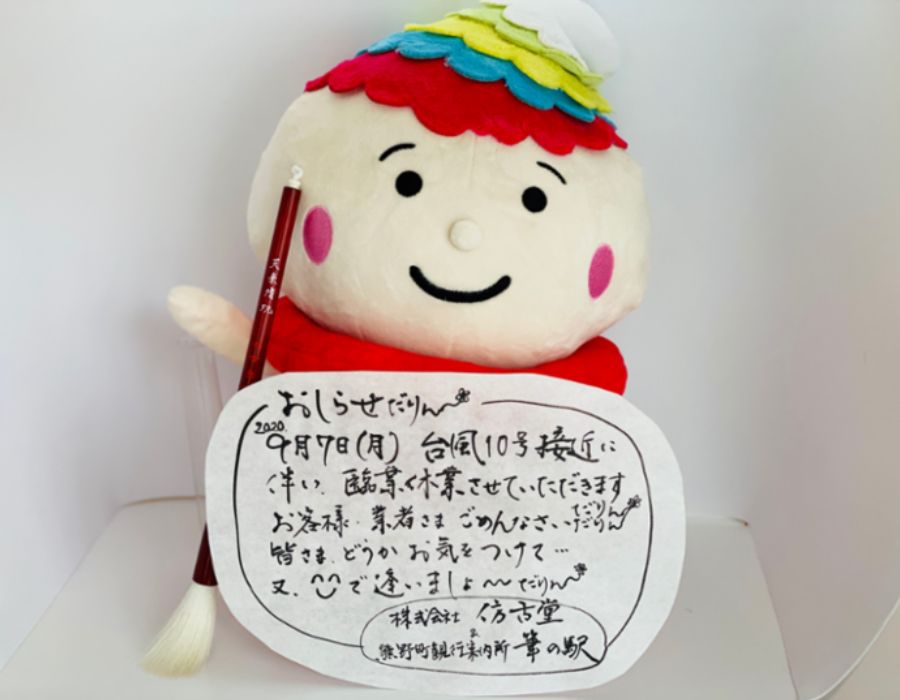 おしらせだりん
2020.
9月7日(月) 台風10号接近に
伴い、臨業休業させていただきます
お客様・業者さま ごめんなさい
だりん
だりん
皆さま、どうか お気をつけて…
又、で逢いましょ〜だりん
株式会社 仿古堂
&
熊野町観光案内所 筆の駅